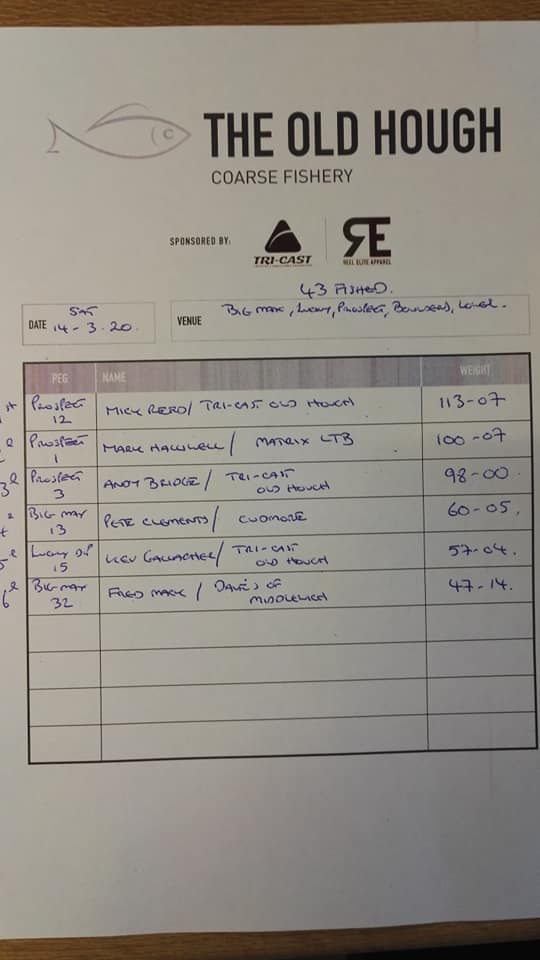 THE OLD HOUGH
COARSE FISHERY
SPONSORED BY:
TRI-CAST
RE
REEL ELITE APPAREL
43 FISHED.
DATE SAT 14-3.20.
VENUE BIG MAX, LUCKY, PROSPECT, BOWSERS, LOWER.
PEG NAME WEIGHT
PROSPECT 12 MICK REED/ TRI-CAST OLD HOUGH 113-07
PROSPECT 1 MARK HALLWELL/ MATRIX LTB 100-07
PROSPECT 3 ANDY BRIDGE/ TRI-CAST OLD HOUGH 98-00.
BIG MAX 13 PETE CLEMENTS/ CUDMORE 60-05.
LUCKY 15 KEV GALLAGHER/ TRI-CAST OLD HOUGH 57-04.
BIG MAX 32 FRED MACK / DAVE'S OF MIDDLEWICH 47-14.